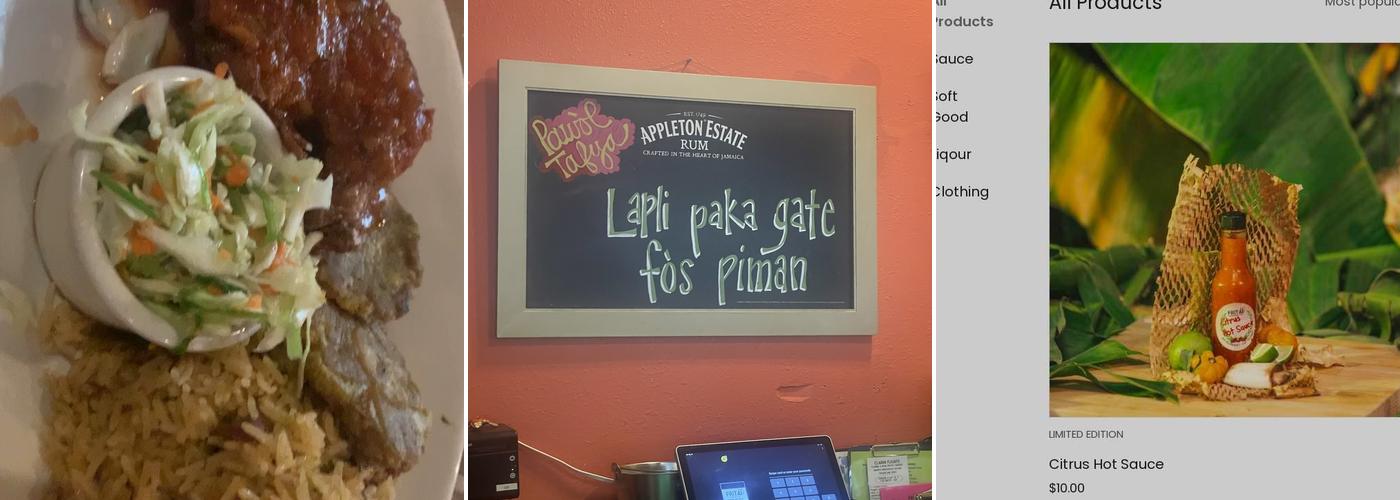 Pawòl
Tafya
EST. 1749
APPLETON ESTATE
RUM
CRAFTED IN THE HEART OF JAMAICA
Lapli paka gate
fòs piman
FRITAI
All
Products
Sauce
Soft
Good
Liqour
Clothing
All Products
Most popula
Citrus
Hot Sauce
LIMITED EDITION
Citrus Hot Sauce
$10.00